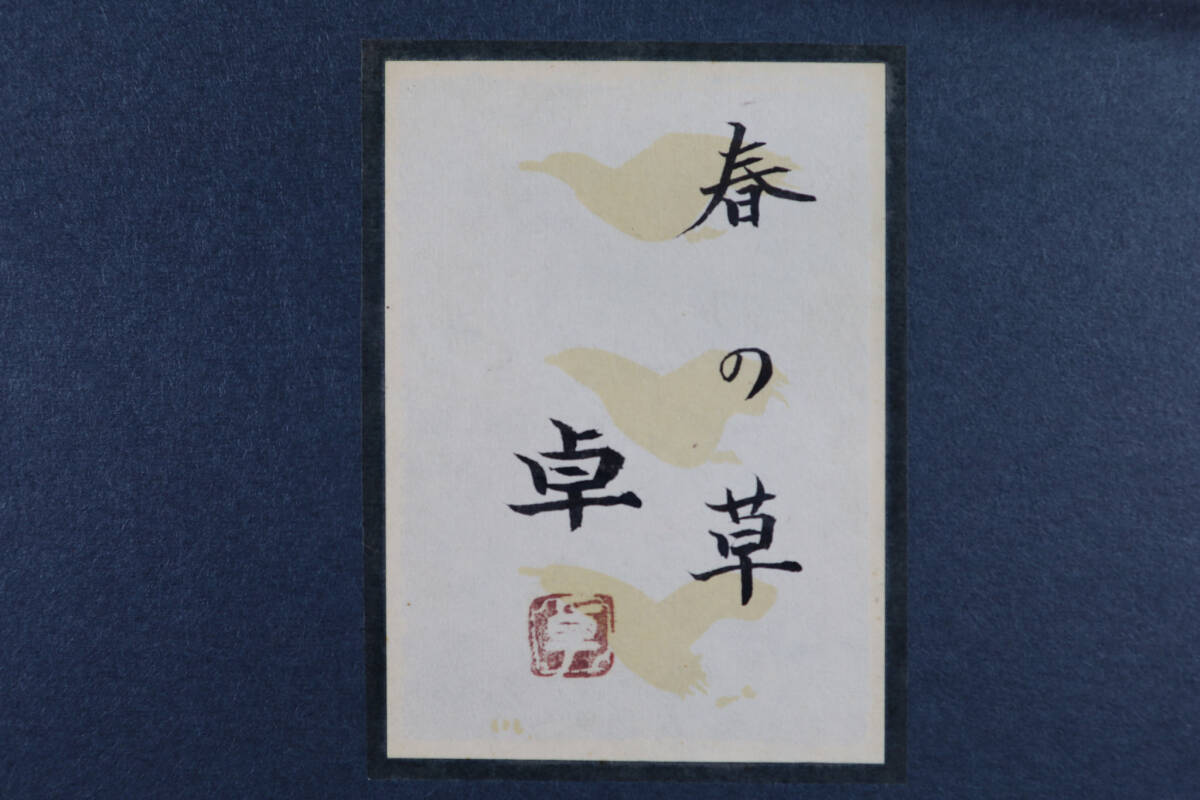 春の草
卓
卓